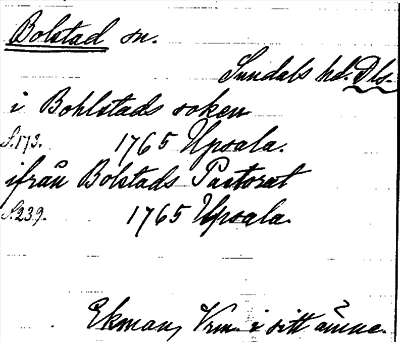 Bolstad sn.
Sundals hd. Dls.
i Bohlstads soken
S. 173. 1765 Upsala.
ifrån Bolstads Pastorat
S. 239. 1765 Upsala.
Ekman, Vrm. i sitt ämne.